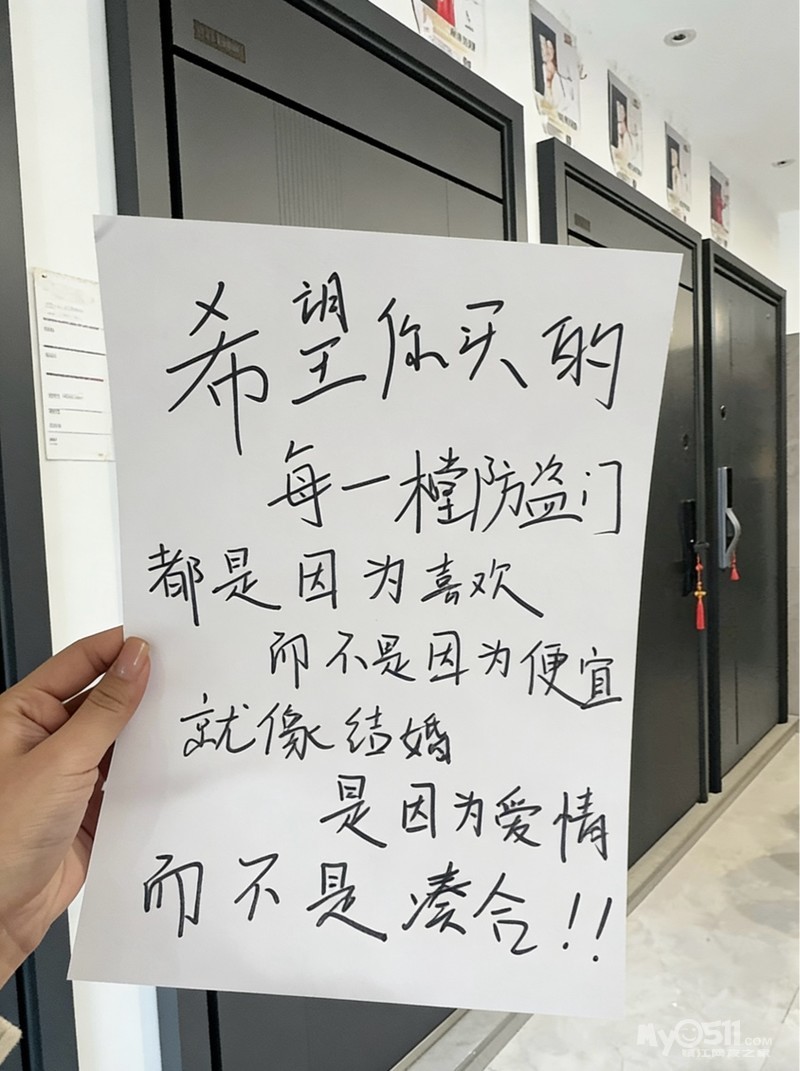 希望你买的
每一樘防盗门
都是因为喜欢
而不是因为便宜
就像结婚
是因为爱情
而不是凑合!!
My0511.COM